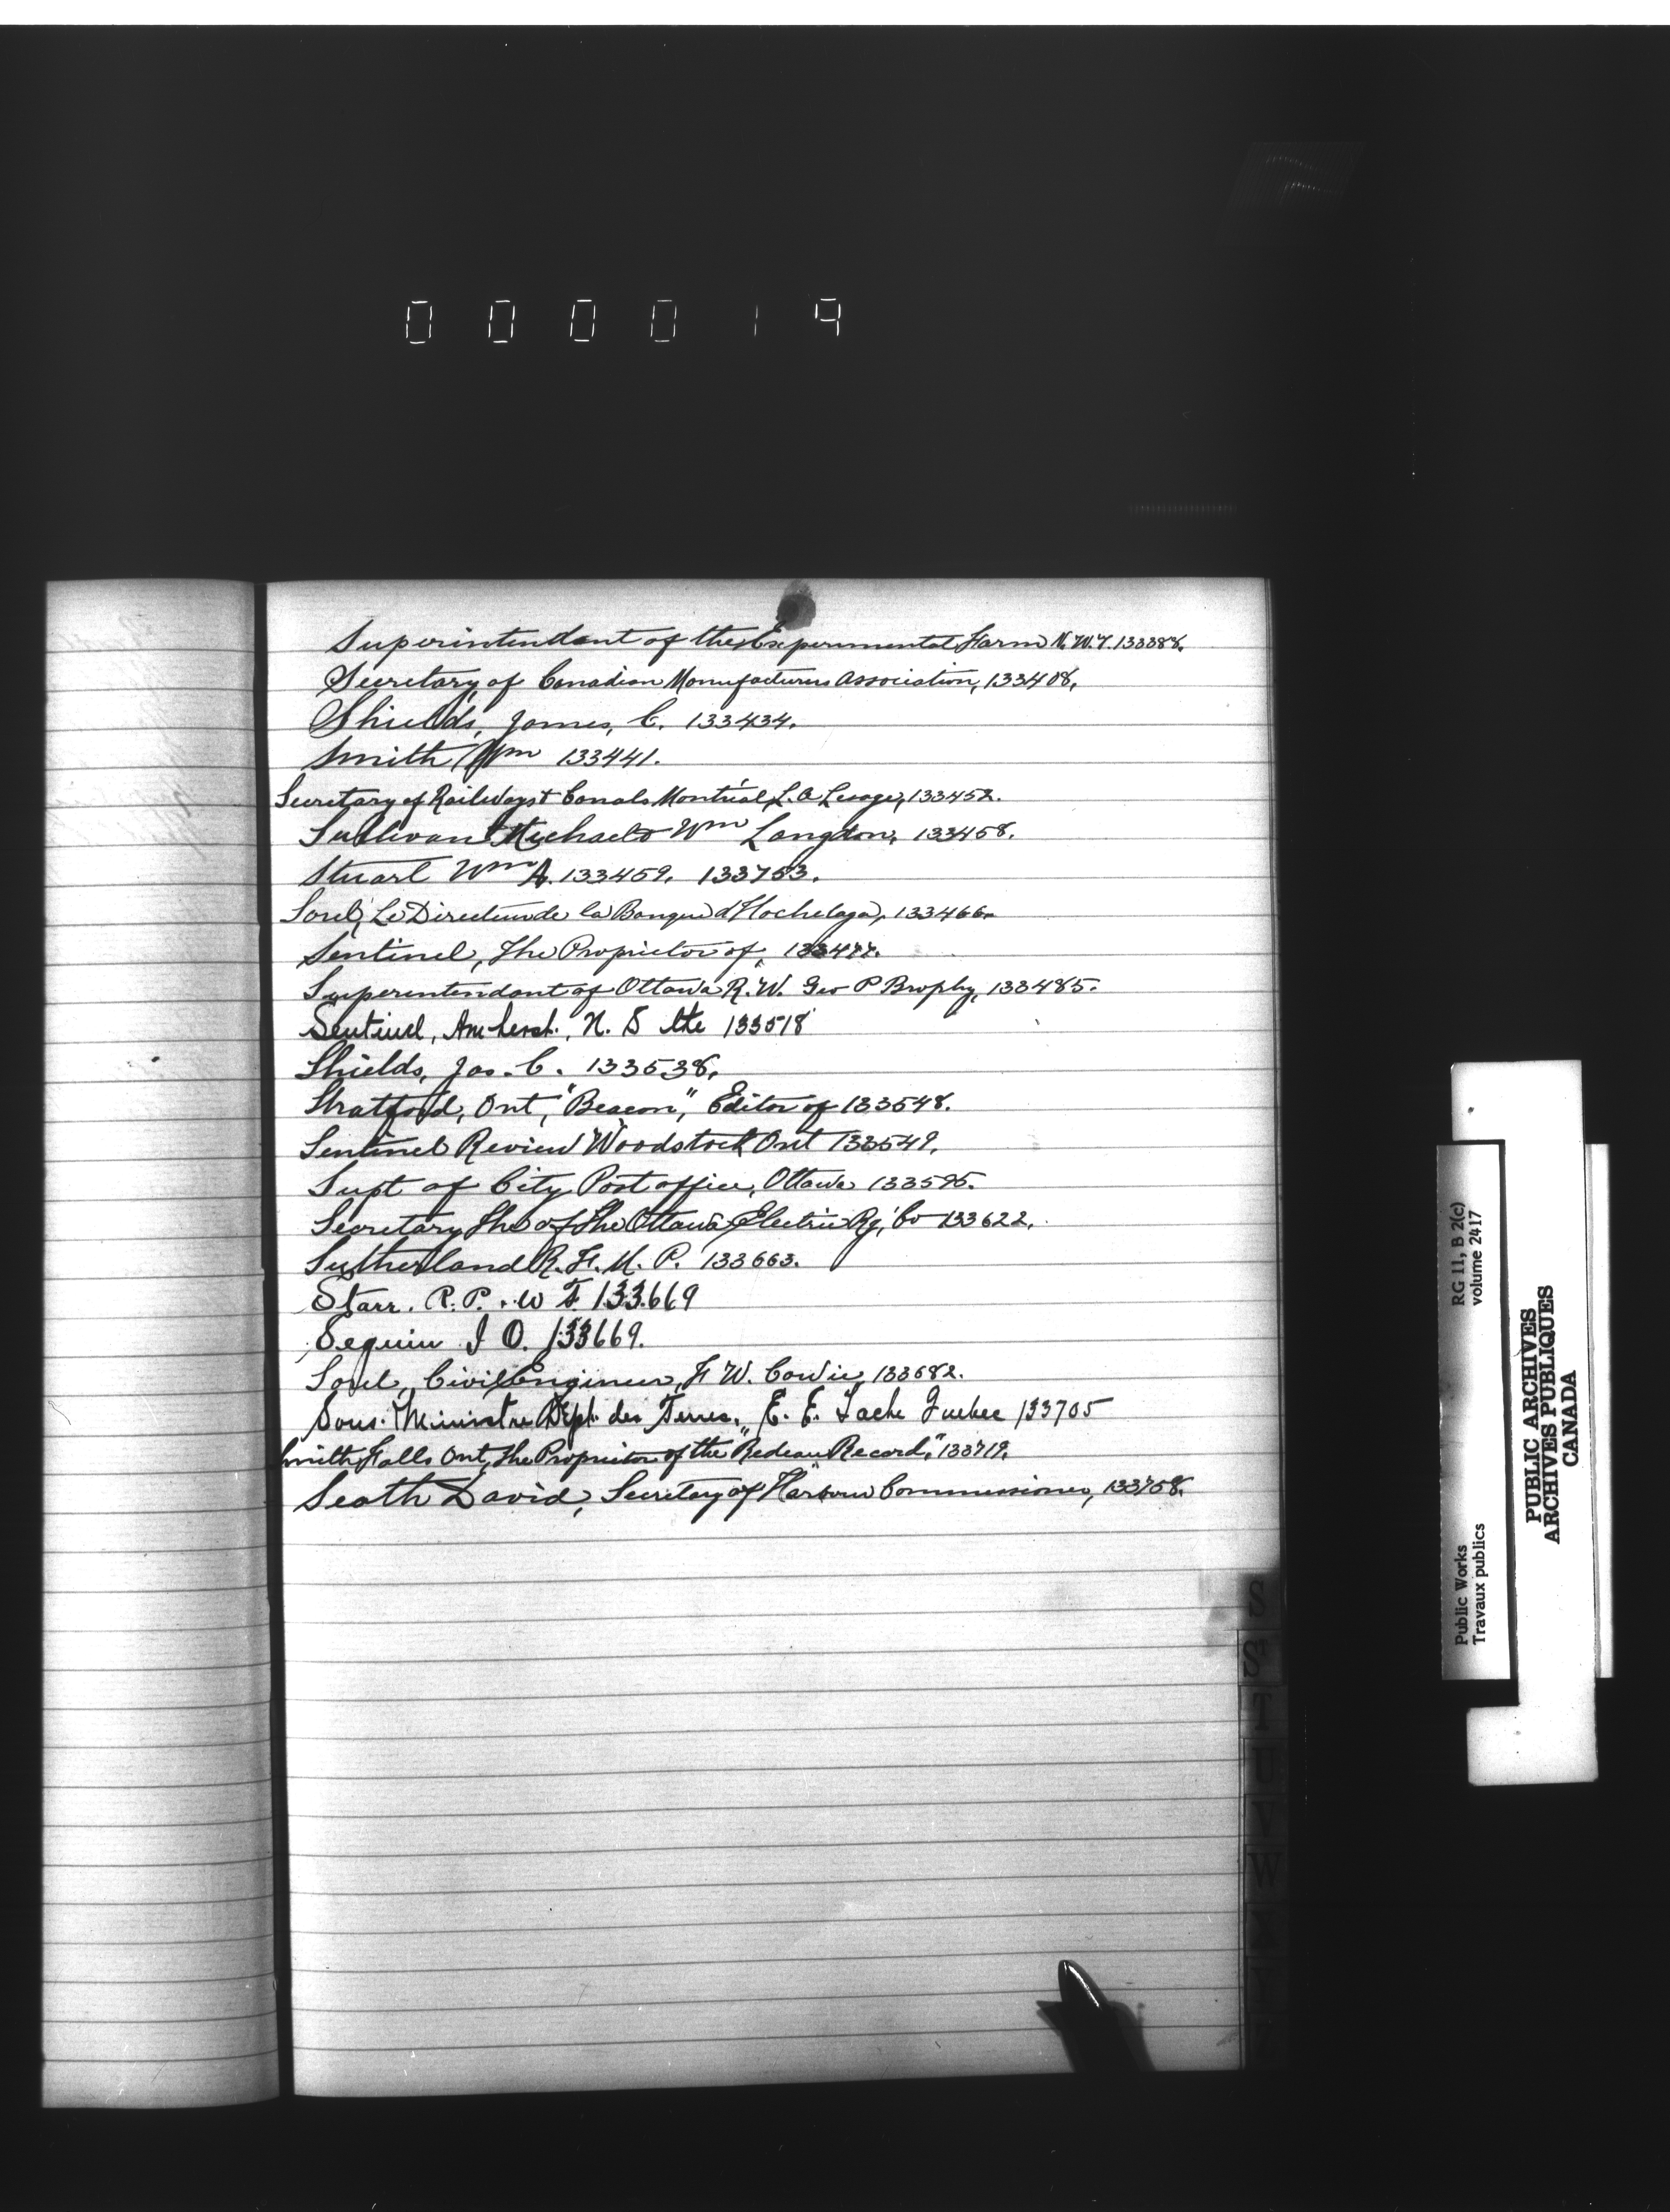 000019
Superintendant of the Experimental Farm N.W.T. 133388.
Secretary of Canadian Manufacturers Association, 133408,
Shields, James, C. 133434.
Smith Wm 133441.
Secretary of Railways & Canals Montréal, L.A. Lesage, 133452.
Sullivan Michael & Wm Langdon, 133458.
Stuart Wm A. 133459. 133753.
Sorel, Le Directeur de la Banque d'Hochelaga, 133466.
Sentinel, The Proprietor of, 133477.
Superentendant of Ottawa R.W. Geo P Brophy, 133485.
Sentinel, Amherst, N. S the 133518
Shields, Jas. C. 133538,
Stratford, Ont, "Beacon", Editor of 133548.
Sentinel Review Woodstock Ont 133549.
Supt of City Post office, Ottawa 133595.
Secretary The of The Ottawa Electric Ry, Co 133622.
Sutherland R. F. M. P. 133663.
Starr. R. P. & W F 133669
Seguin J O. 133669.
Sorel, Civil Engineer, F W. Cowie, 133682.
Sous-Ministre Dept. des Terres, E. E. Tache Quebec 133705
Smith Falls Ont, The Proprietor of the "Redeau Record," 133719.
Seath David, Secretary of Harbour Commissioner, 133758.
S
S
T
U
V
W
Public Works
Travaux publics
RG 11, B 2(c)
volume 2417
PUBLIC ARCHIVES
ARCHIVES PUBLIQUES
CANADA